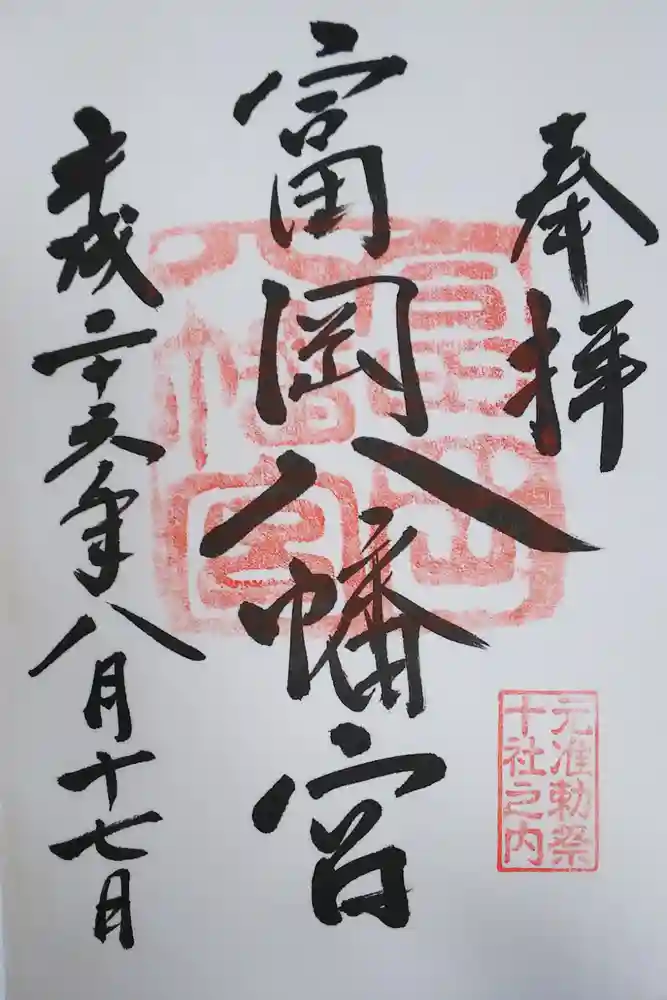 奉拝
富岡八幡宮
平成二十六年八月十七日
富岡八幡宮
元准勅祭
十社之内